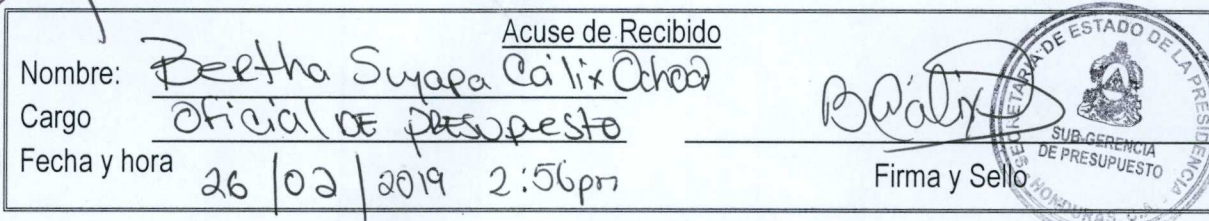 Acuse de Recibido
Nombre: Bertha Suyapa Cálix Ochoa
Cargo Oficial DE presupuesto
Fecha y hora 26/02/2019 2:56pm
BCálix
Firma y Sello
SECRETARIA DE ESTADO DE LA PRESIDENCIA
SUB-GERENCIA
DE PRESUPUESTO
HONDURAS